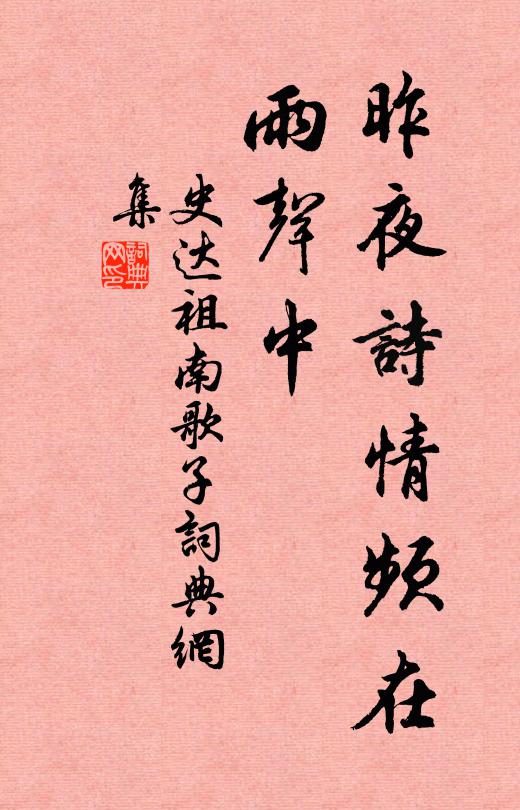 昨夜詩情頻在
雨聲中
史达祖南歌子詞典網
集
詞典
网印